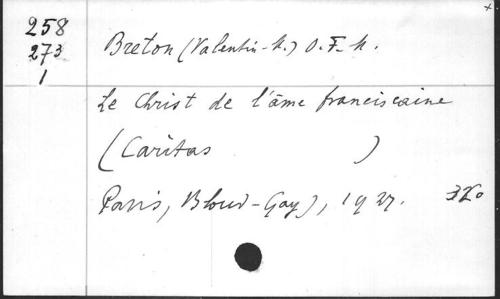 258
273
1
Breton (Valentin-M.) O.F.M.
Le Christ de l'âme franciscaine
(Caritas )
Paris, Bloud-Gay), 1927.